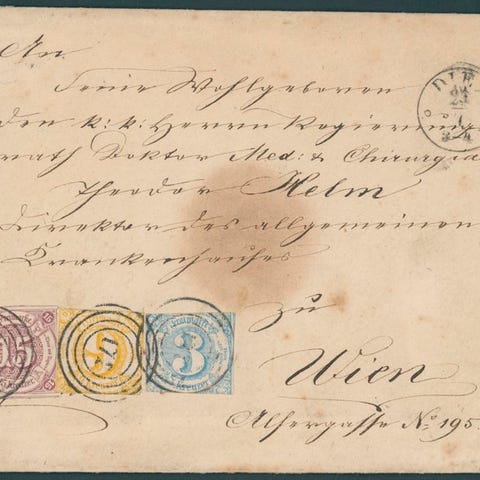 An
Seine Wohlgeboren
den k: k: Herrn Regierungs
rath Doktor Med: & Chirurgia
Theodor Helm
Direktor des allgemeinen
Krankenhauses
zu
Wien
Alsergasse No 195.
DIE
15
9
3
Kreuzer